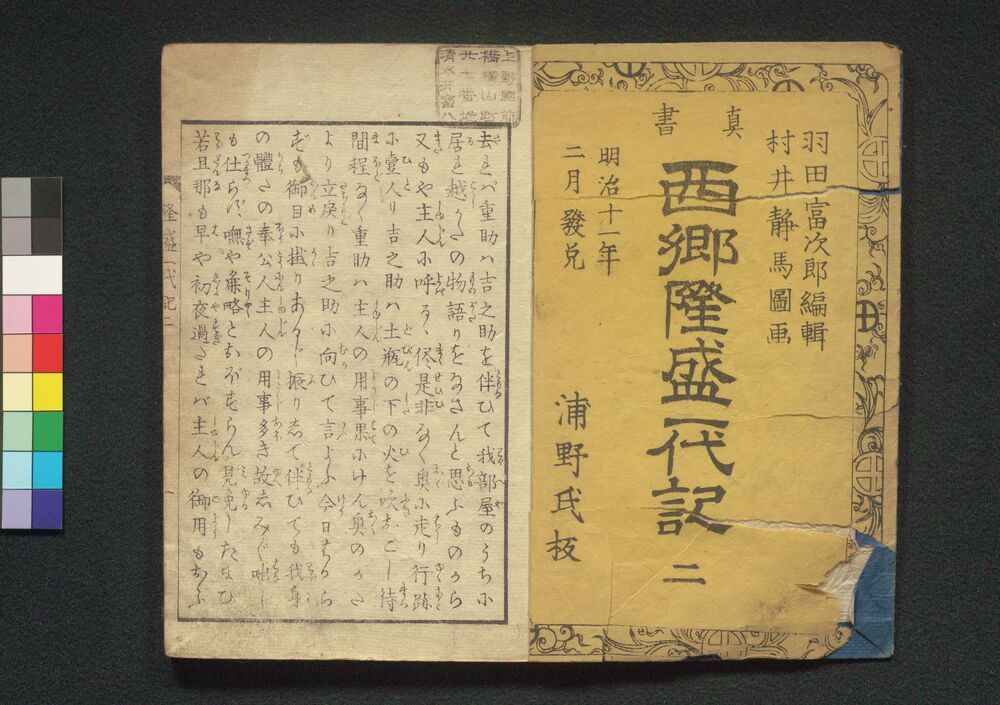 羽田富次郎編輯
村井靜馬圖画
真書
西郷隆盛一代記 二
明治十一年
二月發兌
浦野氏板
上野國前
橋横山町
廿七番地
清水才八
去れバ重助ハ吉之助を伴ひて我部屋のうち小
居さ越かたの物語りをなさんと思ふものから
又もや主人小呼るゝ侭是非なく奥小走り行跡
小壹人り吉之助ハ土瓶の下の火を吹おこし待
間程なく重助ハ主人の用事果小けん奥のかた
より立戻り吉之助小向ひて言よふ今日もから
も御目小掛りあふ振りして伴ひても我身
の體たの奉公人主人の用事多き故しみじ咄し
も仕らず嘸や麁略とおぼすらん見免したまひ
若旦那も早や初夜過たれバ主人の御用もあふ
隆盛一代記二
一